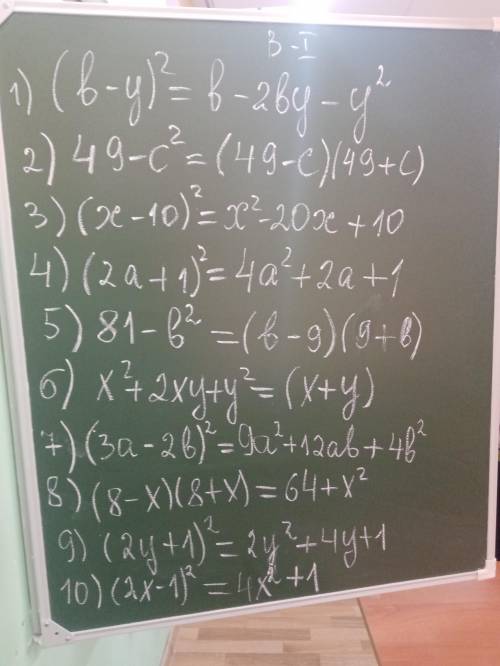 В-I
1) (в-y)² = в - 2вy - y²
2) 49-c² = (49-c)(49+c)
3) (x-10)² = x²-20x+10
4) (2a+1)² = 4a²+2a+1
5) 81-в² = (в-9)(9+в)
6) x²+2xy+y² = (x+y)
7) (3a-2в)² = 9a²+12aв+4в²
8) (8-x)(8+x) = 64+x²
9) (2y+1)² = 2y²+4y+1
10) (2x-1)² = 4x²+1